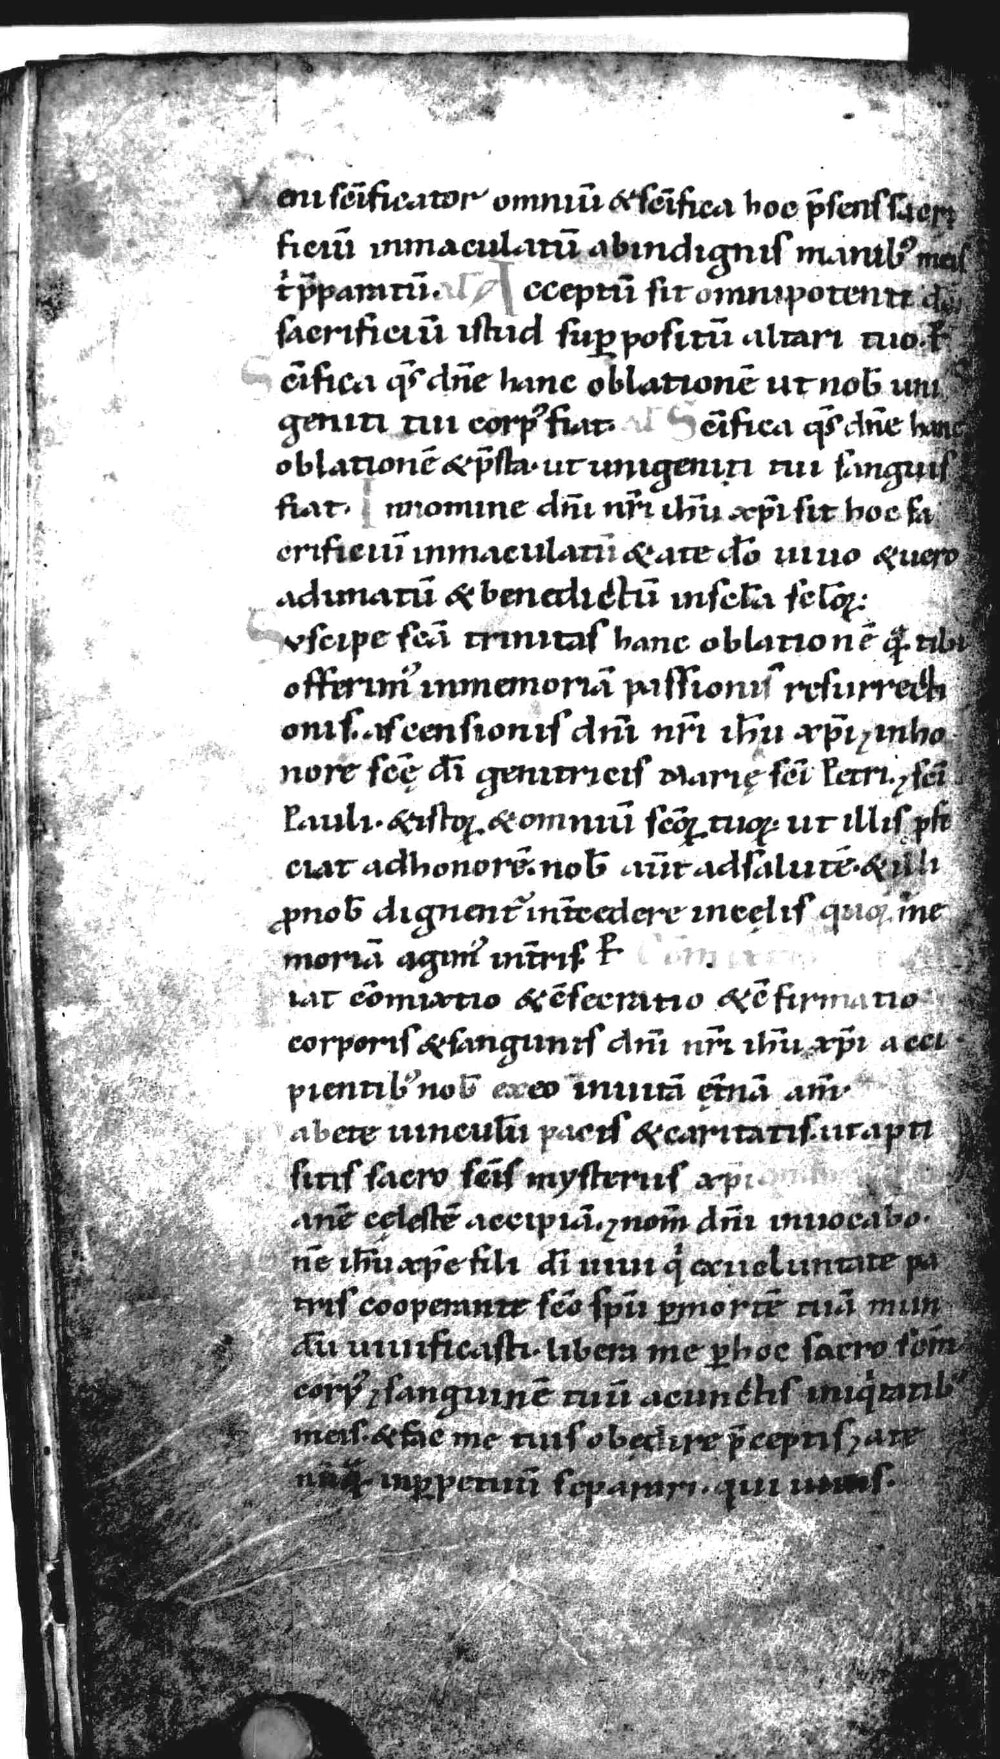 Veni sc̄ificator omniū & sc̄ifica hoc p̄sens sacri
ficiū inmaculatū ab indignis manib; meis
t' p̄paratū. al' Acceptū sit omnipotenti dō
sacrificiū istud sup̱ positū altari tuo. P̱
Sc̄ifica q̄s dn̄e hanc oblationē ut nob̄ uni
geniti tui corp' fiat. al' Sc̄ifica q̄s dn̄e hanc
oblationē & p̄sta. ut unigeniti tui sanguis
fiat. In nomine dn̄i nr̄i ih̄u xp̄i sit hoc sa
crificiū inmaculatū & a te dō uiuo & uero
adunatū & benedictū in sc̄la sc̄loꝝ:
Suscipe sc̄ā trinitas hanc oblationē q̄ tibi
offerim' in memoriā passionis resurrecti
onis. ascensionis dn̄i nr̄i ih̄u xp̄i ⁊ in ho
nore sc̄ę dī genitricis Marię sc̄i Petri. ⁊ sc̄i
Pauli. & istoꝝ & omniū sc̄oꝝ tuoꝝ. ut illis ꝓfi
ciat ad honorē. nob̄ aūt ad salutē. & illi
ꝓ nob̄ dignent' int̄cedere in cęlis quoꝝ me
moriā agim' in t̄ris. P̱
iat cōmixtio & c̄secratio & c̄firmatio
corporis & sanguinis dn̄i nr̄i ih̄u xp̄i acci
pientib; nob̄ ex eo in uitā ęt̄nā am̄.
abete uinculū pacis & caritatis. ut apti
sitis sacro sc̄is mysteriis xp̄i
anē cęlestē accipiā. ⁊ nom̄ dn̄i inuocabo.
n̄e ih̄u xp̄e fili dī uiui q' ex uoluntate pa
tris cooperante sc̄o sp̄u p̱ mortē tuā mun
dū uiuificasti. libera me p̱ hoc sacro sc̄m
corp' ⁊ sanguinē tuū a cunctis iniq'tatib;
meis. & fac me tuis obędire p̄ceptis ⁊ a te
nūq̄ in p̱petuū separari. qui uiuis.